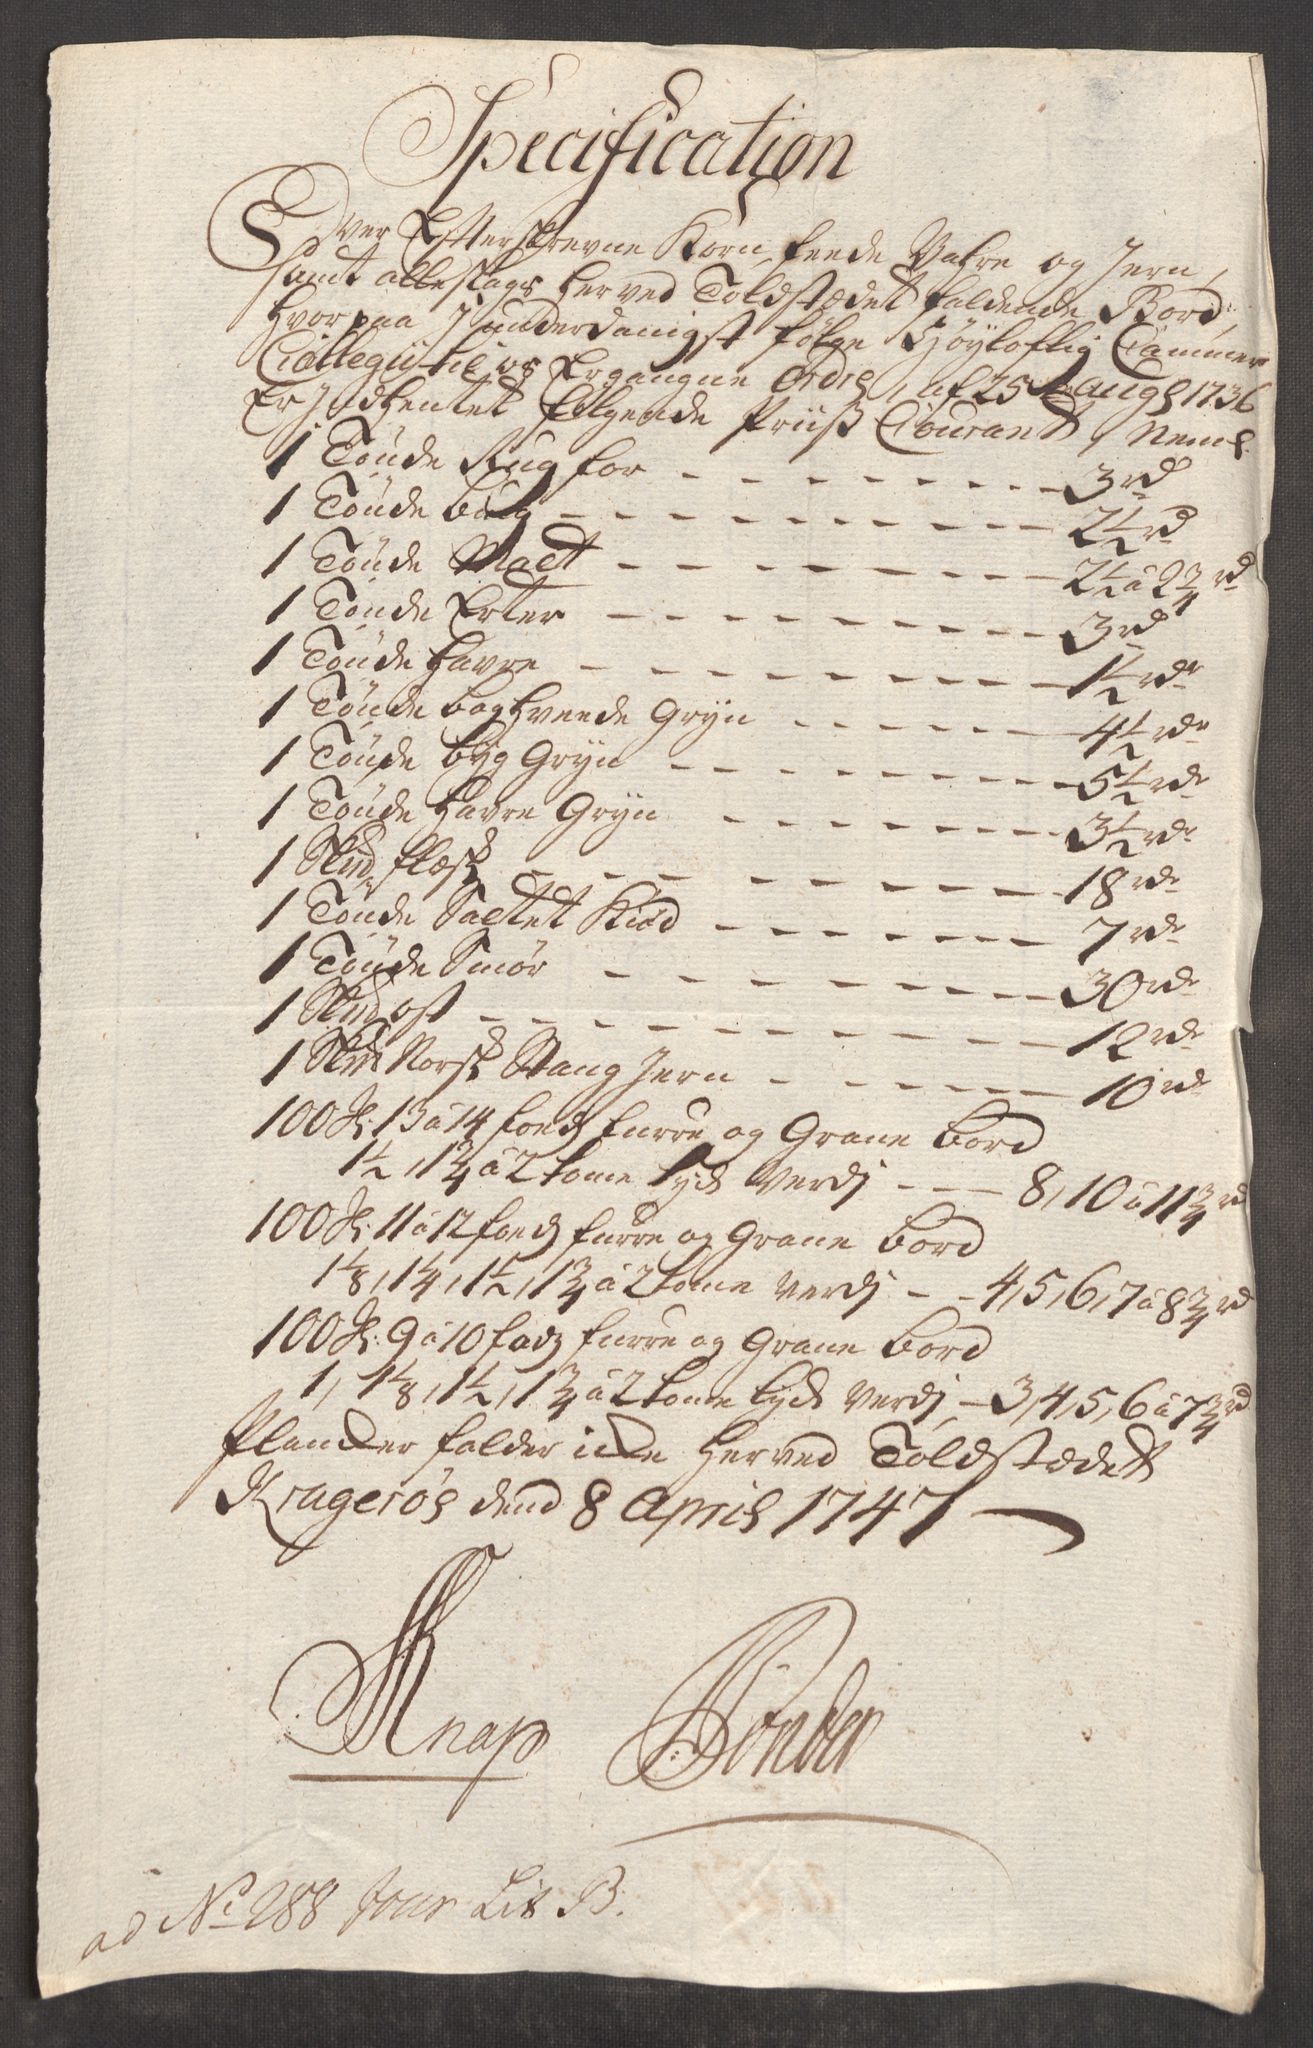 Specification
Over Efterskrevne Korn, feede Vahre og Jern,
samt alleslags herved Toldstædet faldende Bord,
hvorpaa J underdanigst følge Høylofflig Cammer
Collegii til os Ergangne Ordre, af 25de Aug: 1736
Er Jndhentet følgende Priiss Courant, Neml:
1 Tønde Rug for - - - - - - - - - 3 rd
1 Tønde byg - - - - - - - - - - 2½ rd
1 Tønde Malt - - - - - - - - - 2½ à 2¾ rd
1 Tønde Erter - - - - - - - - - 3 rd
1 Tønde havre - - - - - - - - - 1½ rdr
1 Tønde boghveede Gryn - - - - - - 4½ rdr
1 Tønde byg Gryn - - - - - - - - 5½ rdr
1 Tønde havre Gryn - - - - - - - 3½ rdr
1 Skd flæsk - - - - - - - - - - 18 rdr
1 Tønde Saltet Kiød - - - - - - - 7 rdr
1 Tønde Smør - - - - - - - - - 30 rdr
1 Skd ost - - - - - - - - - - - 12 rdr
1 Skd Norsk Stang Jern - - - - - - 10 rdr
100 St: 13 à 14 fods furre og Grane bord
1½, 1¾ à 2 tome tyk Verdj - - - 8, 10 à 11¾ rd
100 St: 11 à 12 fods furre og Grane bord
1⅛, 1¼, 1½, 1¾ à 2 tome Verdj - - 4, 5, 6, 7 à 8¾ rd
100 St: 9 à 10 fods furre og Grane bord
1, 1⅛, 1½, 1¾ à 2 tome tyk Verdj, - 3, 4, 5, 6 à 7¾ rd
Plancker falder icke herved Toldstædett
Kragerøe dend 8 April 1747
Knap Tønder
ad No 288 Jour Lit B: